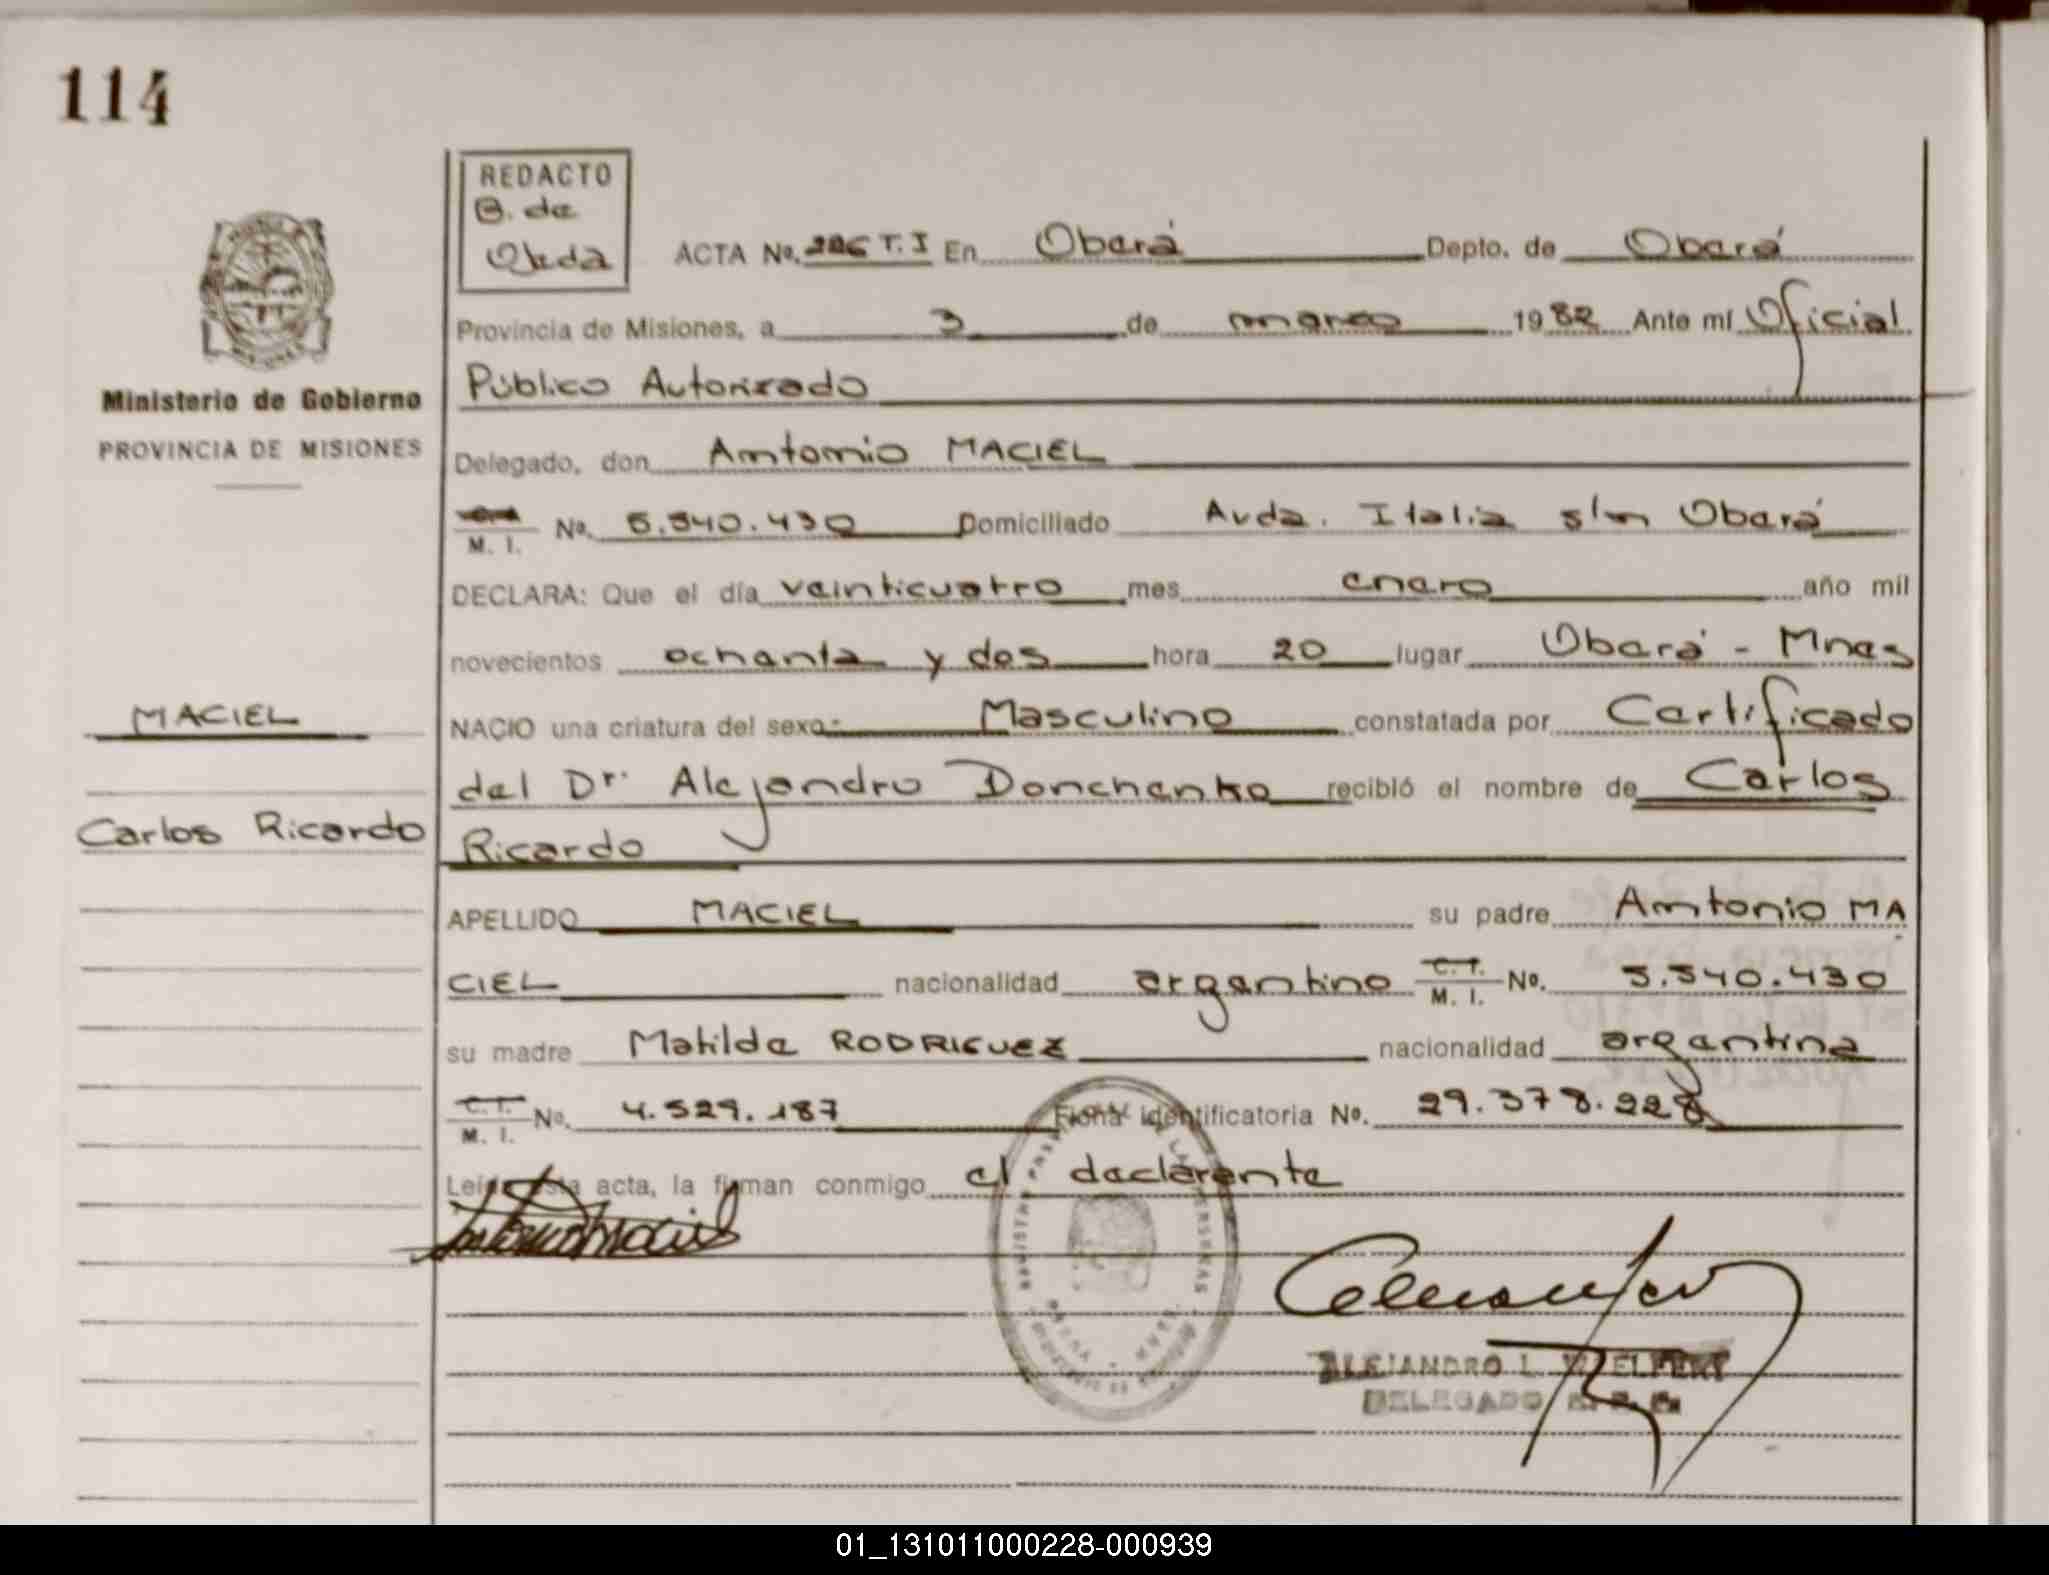 114
REDACTO
B. de
Ojeda
ACTA No. 226 T. I En Oberá Depto. de Oberá
Provincia de Misiones, a 3 de marzo 1982 Ante mí Oficial
Público Autorizado
Ministerio de Gobierno
PROVINCIA DE MISIONES
Delegado, don Antonio MACIEL
M. I. No. 5.540.430 Domiciliado Avda. Italia s/n Oberá
DECLARA: Que el día veinticuatro mes enero año mil
novecientos ochenta y dos hora 20 lugar Oberá - Mnes
MACIEL
NACIO una criatura del sexo: Masculino constatada por Certificado
del Dr. Alejandro Donchenko recibió el nombre de Carlos
Carlos Ricardo
Ricardo
APELLIDO MACIEL su padre Antonio MA
CIEL nacionalidad argentino C. I. M. I. No. 5.540.430
su madre Matilde RODRIGUEZ nacionalidad argentina
C. I. M. I. No. 4.529.187 Ficha identificatoria No. 29.378.228
Leída esta acta, la firman conmigo el declarante
Antonio Maciel
ALEJANDRO L.
DELEGADO R. P. P.
01_131011000228-000939